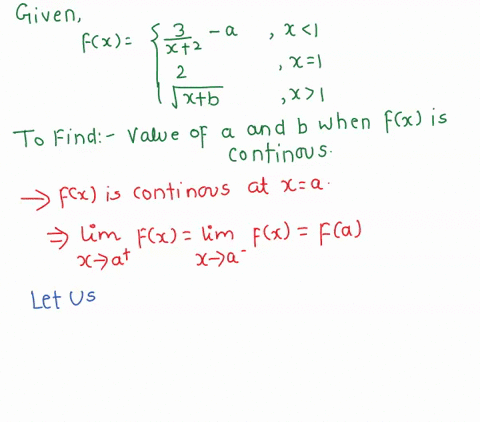 Given,
F(x) = { 3/(x+2) - a , x < 1
2 , x = 1
√(x+b) , x > 1
To Find:- Value of a and b when F(x) is
continous.
→ F(x) is continous at x = a.
⇒ lim x→a⁺ F(x) = lim x→a⁻ F(x) = F(a)
Let Us